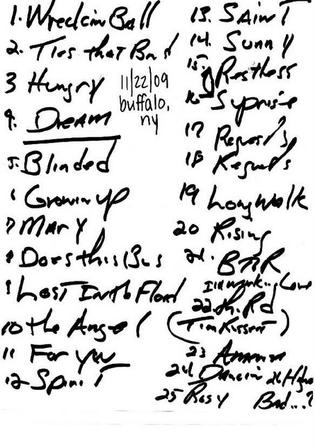 1. Wreckin Ball
2. Ties that Bind
3 Hungry
4. DREAM
5. Blinded
6 Growin up
7 MARY
8 Does this Bus
9 Lost In the Flood
10 the Angel
11 For you
12 Spirit
11/22/09
buffalo,
ny
13. SAINT
14. Sunny
15. Restless
16 Suprise
17 Request's
18 Request's
19 Long Walk
20 Rising
21. BTR
22. Rd
23
24. Dancin 26 Higher
25 Rosy Bad...?